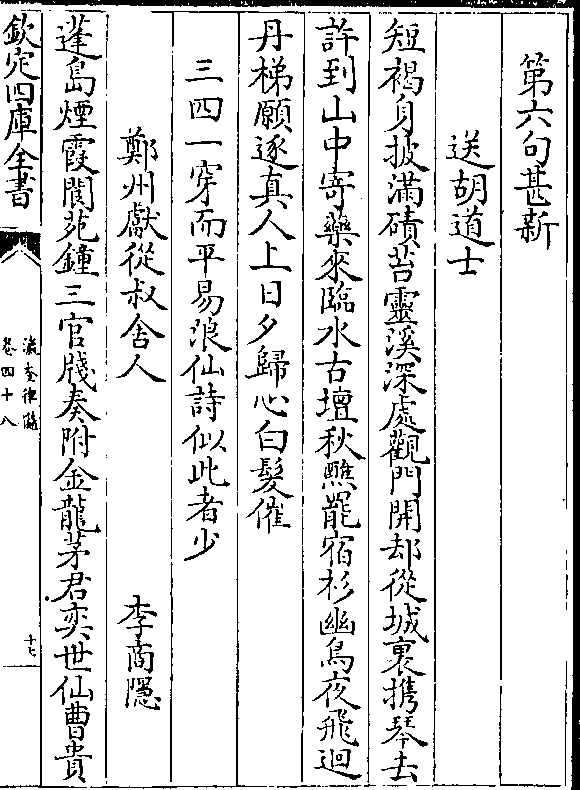 第六句甚新
送胡道士
短褐身披滿磧苔靈溪深處觀門開却從城裏携琴去
許到山中寄藥來臨水古壇秋醮罷宿杉幽鳥夜飛迴
丹梯願逐真人上日夕歸心白髮催
三四一穿而平易浪仙詩似此者少
鄭州獻從叔舍人 李商隱
蓬島煙霞閬苑鐘三官牋奏附金龍茅君奕世仙曹貴
欽定四庫全書
瀛奎律髓
卷四十八
十七